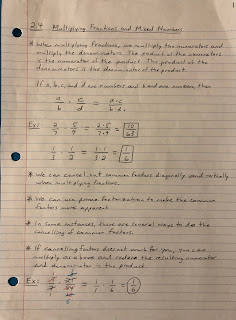 2.4 Multiplying Fractions and Mixed Numbers
* When multiplying fractions, we multiply the numerators and
multiply the denominators. The product of the numerators
is the numerator of the product. The product of the
denominators is the denominator of the product.
If a, b, c, and d are numbers and b and d are nonzero, then
a/b · c/d = a·c/b·d
Ex: 2/7 · 5/9 = 2·5/7·9 = 10/63
1/3 · 1/2 = 1·1/3·2 = 1/6
* We can cancel out common factors diagonally and vertically
when multiplying fractions.
* We can use prime factorization to make the common
factors more apparent.
* In some instances, there are several ways to do the
cancelling of common factors.
* If cancelling factors does not work for you, you can
multiply as above and reduce the resulting numerator
and denominator in the product.
Ex: = 1/1 · 1/6 = 1/6